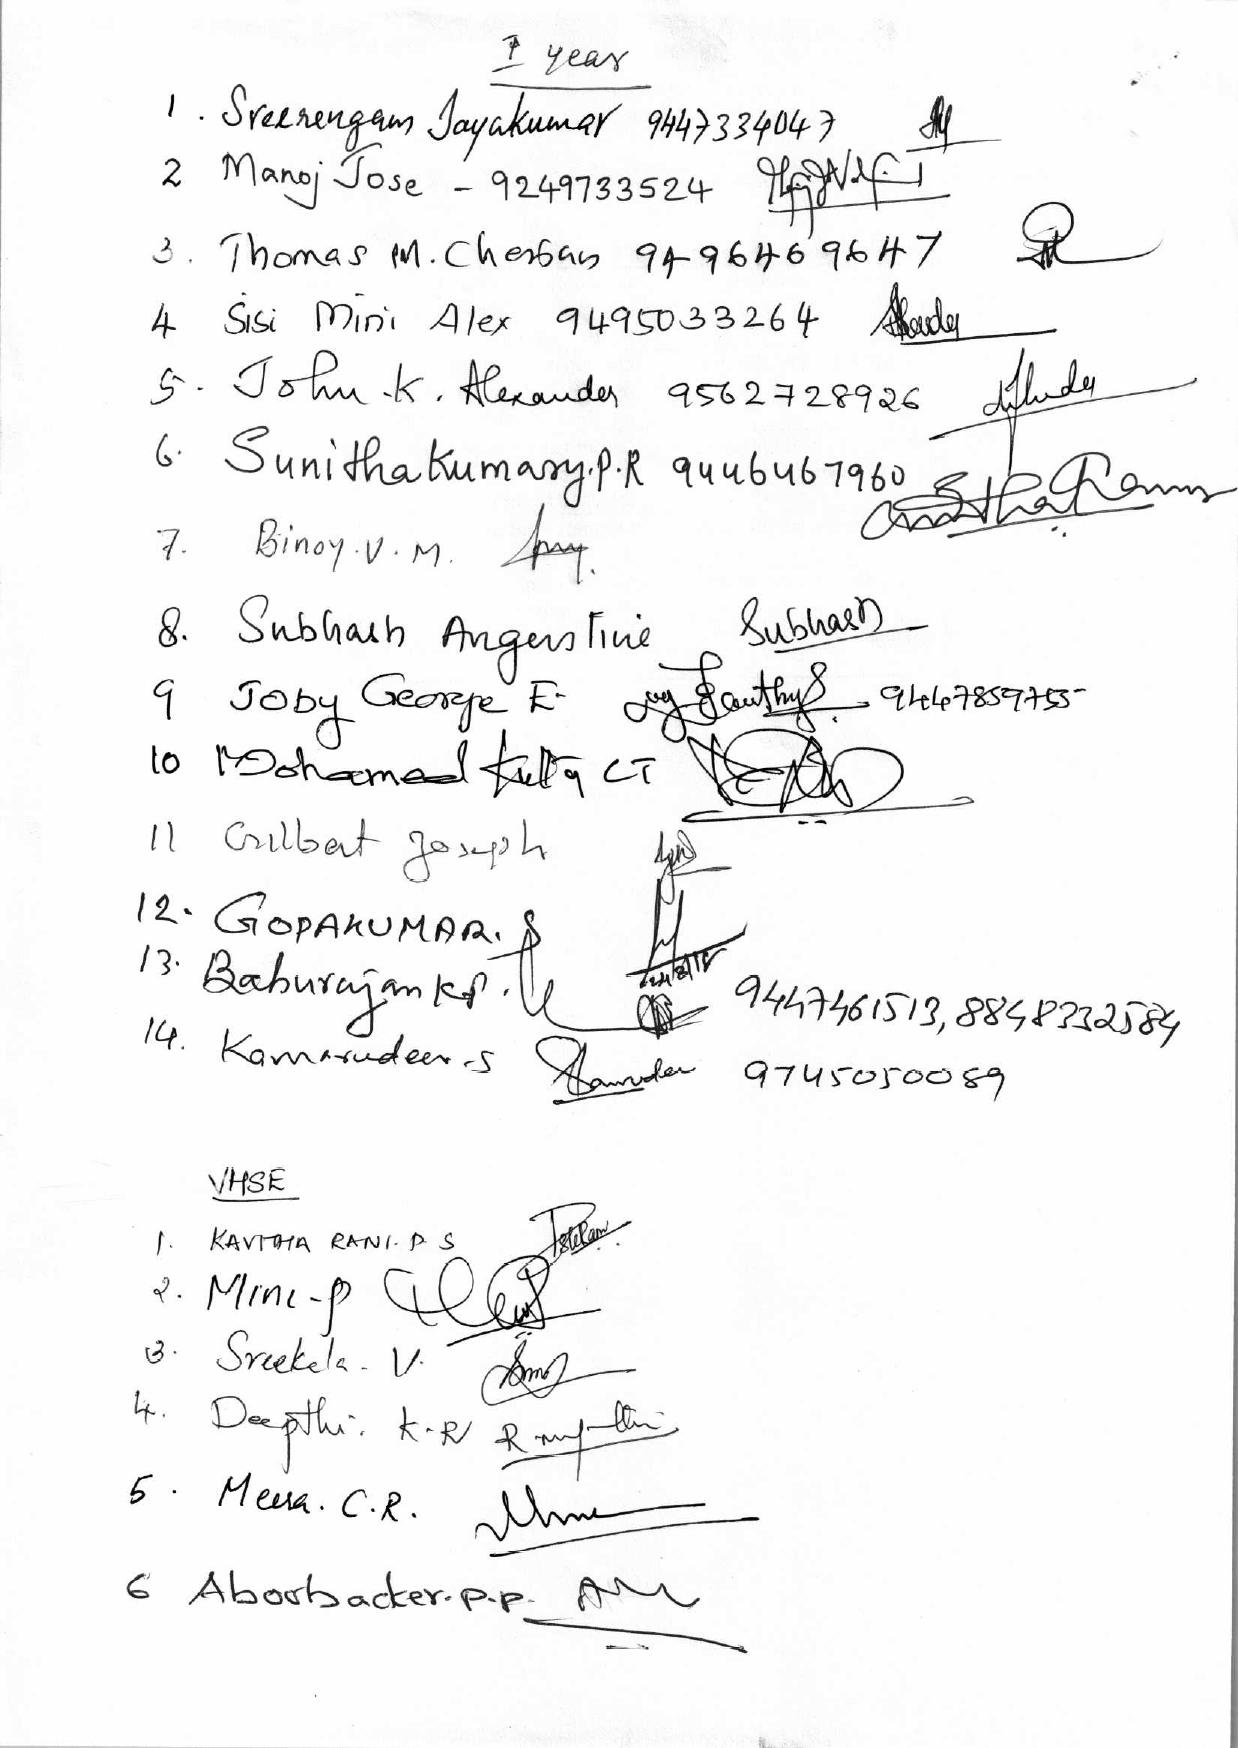 I year
1. Sreerengam Jayakumar 9447334047
2 Manoj Jose - 9249733524
3. Thomas M. Cherian 9496469647
4 Sisi Mini Alex 9495033264
5. John K. Alexander 9562728926
6. Sunithakumary.P.R 9446467960
7. Binoy.V.M.
8. Subhash Angerstine Subhash
9 Joby George E- 9447859755
10 Mohamed Kutty CT
11 Gilbert Joseph
12. GOPAKUMAR. S
13. Baburajan K.P. 9447461513, 8848332584
14. Kamarudeen.S 9745050089
VHSE
1. KAVITHA RANI. P S
2. Mini-P
3. Sreekala. V.
4. Deepthi. K.R
5. Meera. C.R.
6 Aboobacker.P.P.